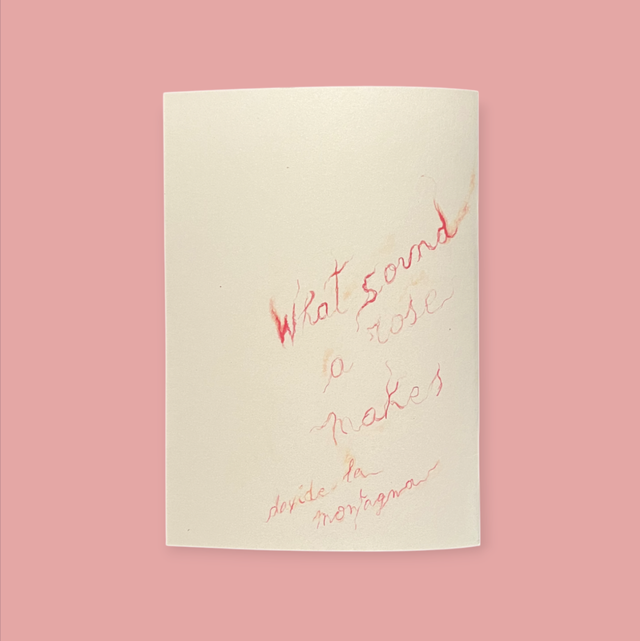 What sound
a rose
makes
davide la
montagna